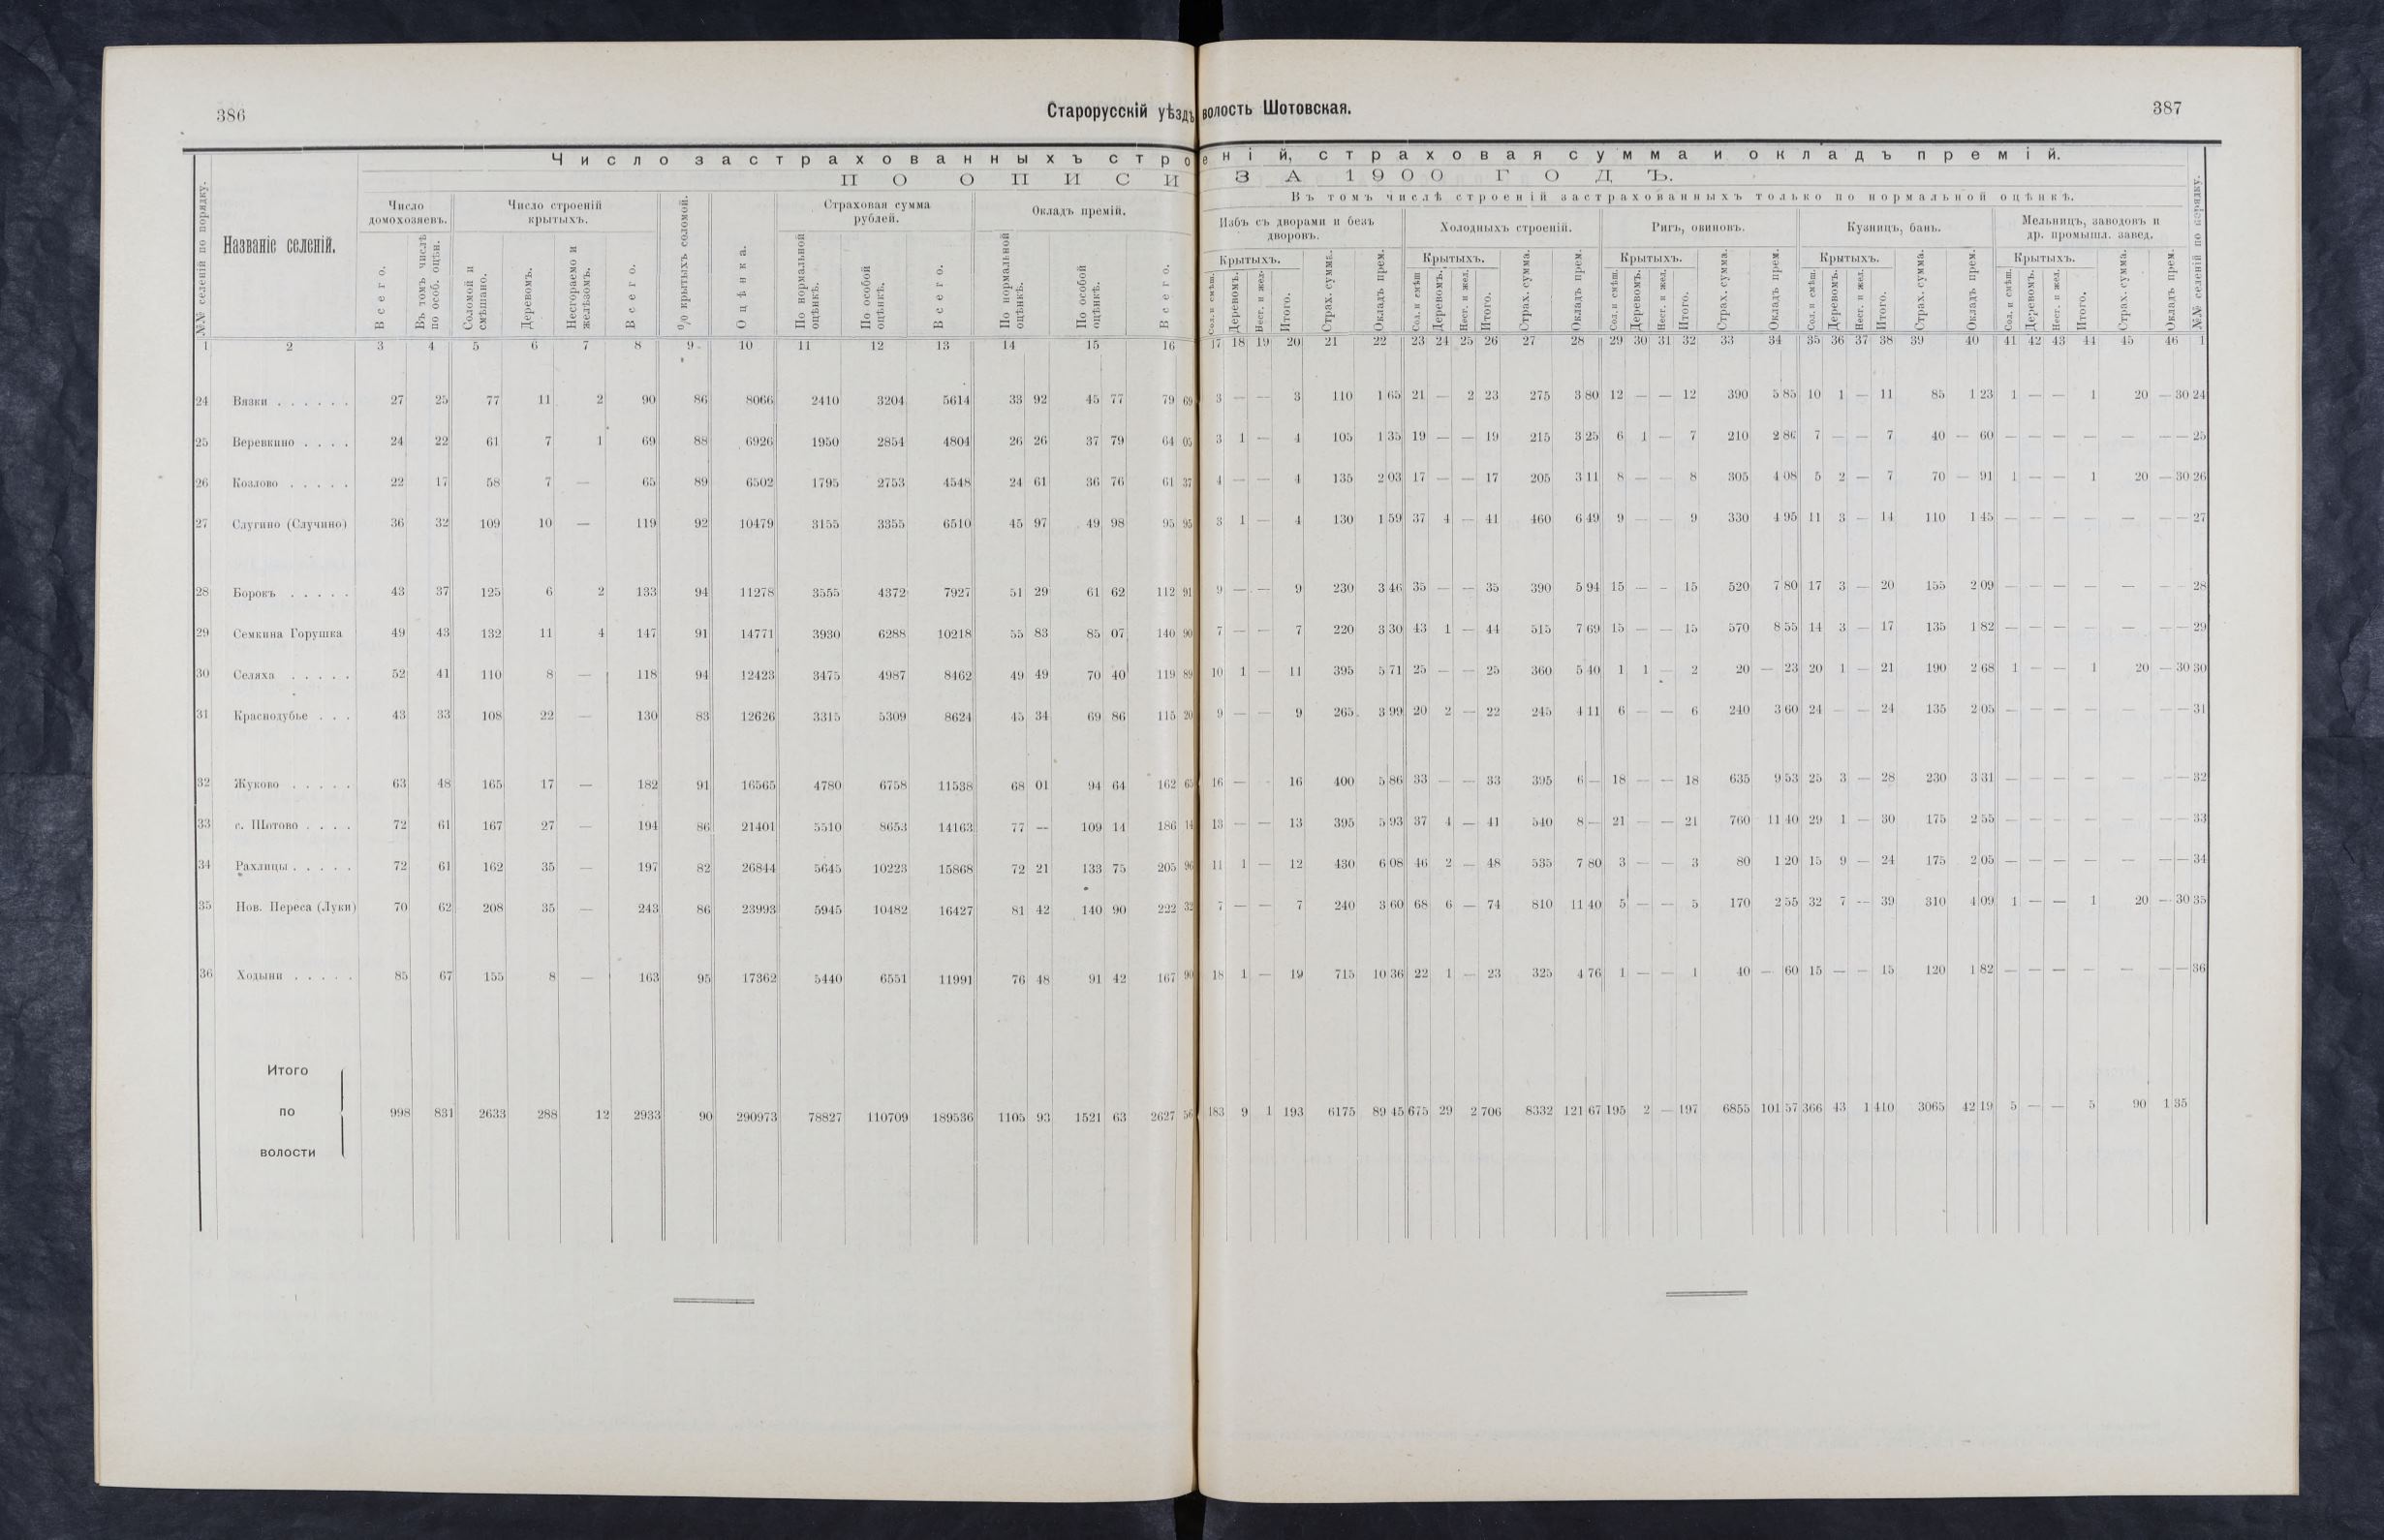 386
Старорусскій уѣздъ
волость Шотовская.
387
Число застрахованныхъ строеній, страховая сумма и окладъ премій.
ПО ОПИСИ ЗА 1900 ГОДЪ.
Въ томъ числѣ строеній застрахованныхъ только по нормальной оцѣнкѣ.
№№ селеній по порядку.
Названіе селеній.
Число домохозяевъ.
Всего.
Въ томъ числѣ по особ. оцѣн.
Число строеній крытыхъ.
Соломой и смѣшано.
Деревомъ.
Несгораемо и желѣзомъ.
Всего.
% крытыхъ соломой.
Оцѣнка.
Страховая сумма рублей.
По нормальной оцѣнкѣ.
По особой оцѣнкѣ.
Всего.
Окладъ премій.
По нормальной оцѣнкѣ.
По особой оцѣнкѣ.
Всего.
Избъ съ дворами и безъ дворовъ.
Крытыхъ.
Сол. и смѣш.
Деревомъ.
Несг. и жел.
Итого.
Страх. сумма.
Окладъ прем.
Холодныхъ строеній.
Крытыхъ.
Сол. и смѣш
Деревомъ.
Несг. и жел.
Итого.
Страх. сумма.
Окладъ прем.
Ригъ, овиновъ.
Крытыхъ.
Сол. и смѣш.
Деревомъ.
Несг. и жел.
Итого.
Страх. сумма.
Окладъ прем.
Кузницъ, бань.
Крытыхъ.
Сол. и смѣш.
Деревомъ.
Несг. и жел.
Итого.
Страх. сумма.
Окладъ прем.
Мельницъ, заводовъ и др. промышл. завед.
Крытыхъ.
Сол. и смѣш.
Деревомъ.
Несг. и жел.
Итого.
Страх. сумма.
Окладъ прем.
№№ селеній по порядку.
1 2 3 4 5 6 7 8 9 10 11 12 13 14 15 16 17 18 19 20 21 22 23 24 25 26 27 28 29 30 31 32 33 34 35 36 37 38 39 40 41 42 43 44 45 46 1
24 Вязки . . . . . . 27 25 77 11 2 90 86 8066 2410 3204 5614 33 92 45 77 79 69 3 — — 3 110 1 65 21 — 2 23 275 3 80 12 — — 12 390 5 85 10 1 — 11 85 1 23 1 — — 1 20 — 30 24
25 Веревкино . . . . 24 22 61 7 1 69 88 6926 1950 2854 4804 26 26 37 79 64 05 3 1 — 4 105 1 35 19 — — 19 215 3 25 6 1 — 7 210 2 86 7 — — 7 40 — 60 — — — — — — — 25
26 Козлово . . . . . 22 17 58 7 — 65 89 6502 1795 2753 4548 24 61 36 76 61 37 4 — — 4 135 2 03 17 — — 17 205 3 11 8 — — 8 305 4 08 5 2 — 7 70 — 91 1 — — 1 20 — 30 26
27 Слугино (Случино) 36 32 109 10 — 119 92 10479 3155 3355 6510 45 97 49 98 95 95 3 1 — 4 130 1 59 37 4 — 41 460 6 49 9 — — 9 330 4 95 11 3 — 14 110 1 45 — — — — — — — 27
28 Борокъ . . . . . 43 37 125 6 2 133 94 11278 3555 4372 7927 51 29 61 62 112 91 9 — — 9 230 3 46 35 — — 35 390 5 94 15 — — 15 520 7 80 17 3 — 20 155 2 09 — — — — — — — 28
29 Семкина Горушка 49 43 132 11 4 147 91 14771 3930 6288 10218 55 83 85 07 140 90 7 — — 7 220 3 30 43 1 — 44 515 7 69 15 — — 15 570 8 55 14 3 — 17 135 1 82 — — — — — — — 29
30 Селяха . . . . . 52 41 110 8 — 118 94 12423 3475 4987 8462 49 49 70 40 119 89 10 1 — 11 395 5 71 25 — — 25 360 5 40 1 1 — 2 20 — 23 20 1 — 21 190 2 68 1 — — 1 20 — 30 30
31 Краснодубье . . . 43 33 108 22 — 130 83 12626 3315 5309 8624 45 34 69 86 115 20 9 — — 9 265 3 99 20 2 — 22 245 4 11 6 — — 6 240 3 60 24 — — 24 135 2 05 — — — — — — — 31
32 Жуково . . . . . 63 48 165 17 — 182 91 16565 4780 6758 11538 68 01 94 64 162 65 16 — - 16 400 5 86 33 — — 33 395 6 — 18 — — 18 635 9 53 25 3 — 28 230 3 31 — — — — — — — 32
33 с. Шотово . . . . 72 61 167 27 — 194 86 21401 5510 8653 14163 77 — 109 14 186 14 13 — — 13 395 5 93 37 4 — 41 540 8 — 21 — — 21 760 11 40 29 1 — 30 175 2 55 — — — — — — — 33
34 Рахлицы . . . . . 72 61 162 35 — 197 82 26844 5645 10223 15868 72 21 133 75 205 96 11 1 — 12 430 6 08 46 2 — 48 535 7 80 3 — — 3 80 1 20 15 9 — 24 175 2 05 — — — — — — — 34
35 Нов. Переса (Луки) 70 62 208 35 — 243 86 23993 5945 10482 16427 81 42 140 90 222 32 7 — — 7 240 3 60 68 6 — 74 810 11 40 5 — — 5 170 2 55 32 7 — 39 310 4 09 1 — — 1 20 — 30 35
36 Ходыни . . . . . 85 67 155 8 — 163 95 17362 5440 6551 11991 76 48 91 42 167 90 18 1 — 19 715 10 36 22 1 — 23 325 4 76 1 — — 1 40 — 60 15 — — 15 120 1 82 — — — — — — — 36
Итого
по
волости
998 831 2633 288 12 2933 90 290973 78827 110709 189536 1105 93 1521 63 2627 56 183 9 1 193 6175 89 45 675 29 2 706 8332 121 67 195 2 — 197 6855 101 57 366 43 1 410 3065 42 19 5 — — 5 90 1 35